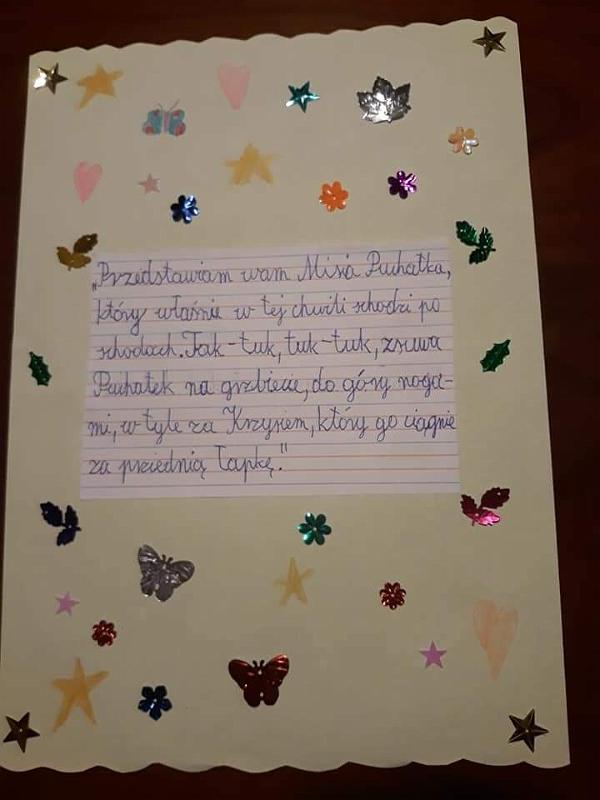 „Przedstawiam wam Misia Puchatka,
który właśnie w tej chwili schodzi po
schodach. Tak-tuk, tuk-tuk, zsuwa
Puchatek na grzbiecie, do góry noga-
mi, w tyle za Krzysiem, który go ciągnie
za przednią łapkę."